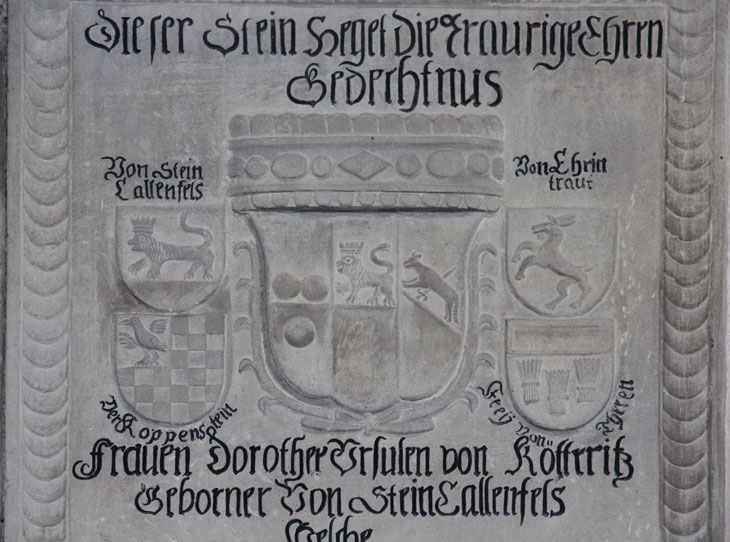 Dieser Stein Heget Die Traurige Ehren
Gedechtnus
Von Stein
Callenfels
Von Ehrin
traut
Von Koppenstein
Freÿ von
Eheren
Frauen Dorother Ursulen von Kötteritz
Geborner Von Stein Callenfels
Welche